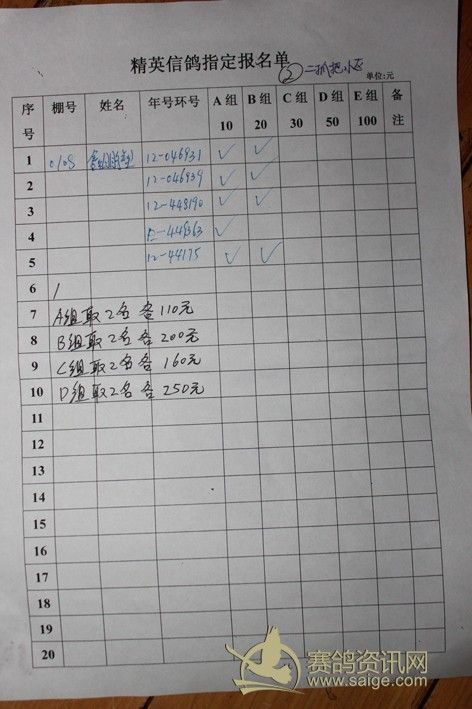 精英信鸽指定报名单
② 二抓把
单位:元
序号 棚号 姓名 年号环号 A组 10 B组 20 C组 30 D组 50 E组 100 备注
1 0108 12-046931 ✓ ✓
2 12-046939 ✓ ✓
3 12-448190 ✓ ✓
4 12-446363 ✓
5 12-44175 ✓ ✓
6 /
7 A组取2名各110元
8 B组取2名各200元
9 C组取2名各160元
10 D组取2名各250元
11
12
13
14
15
16
17
18
19
20
赛鸽资讯网
www.saige.com